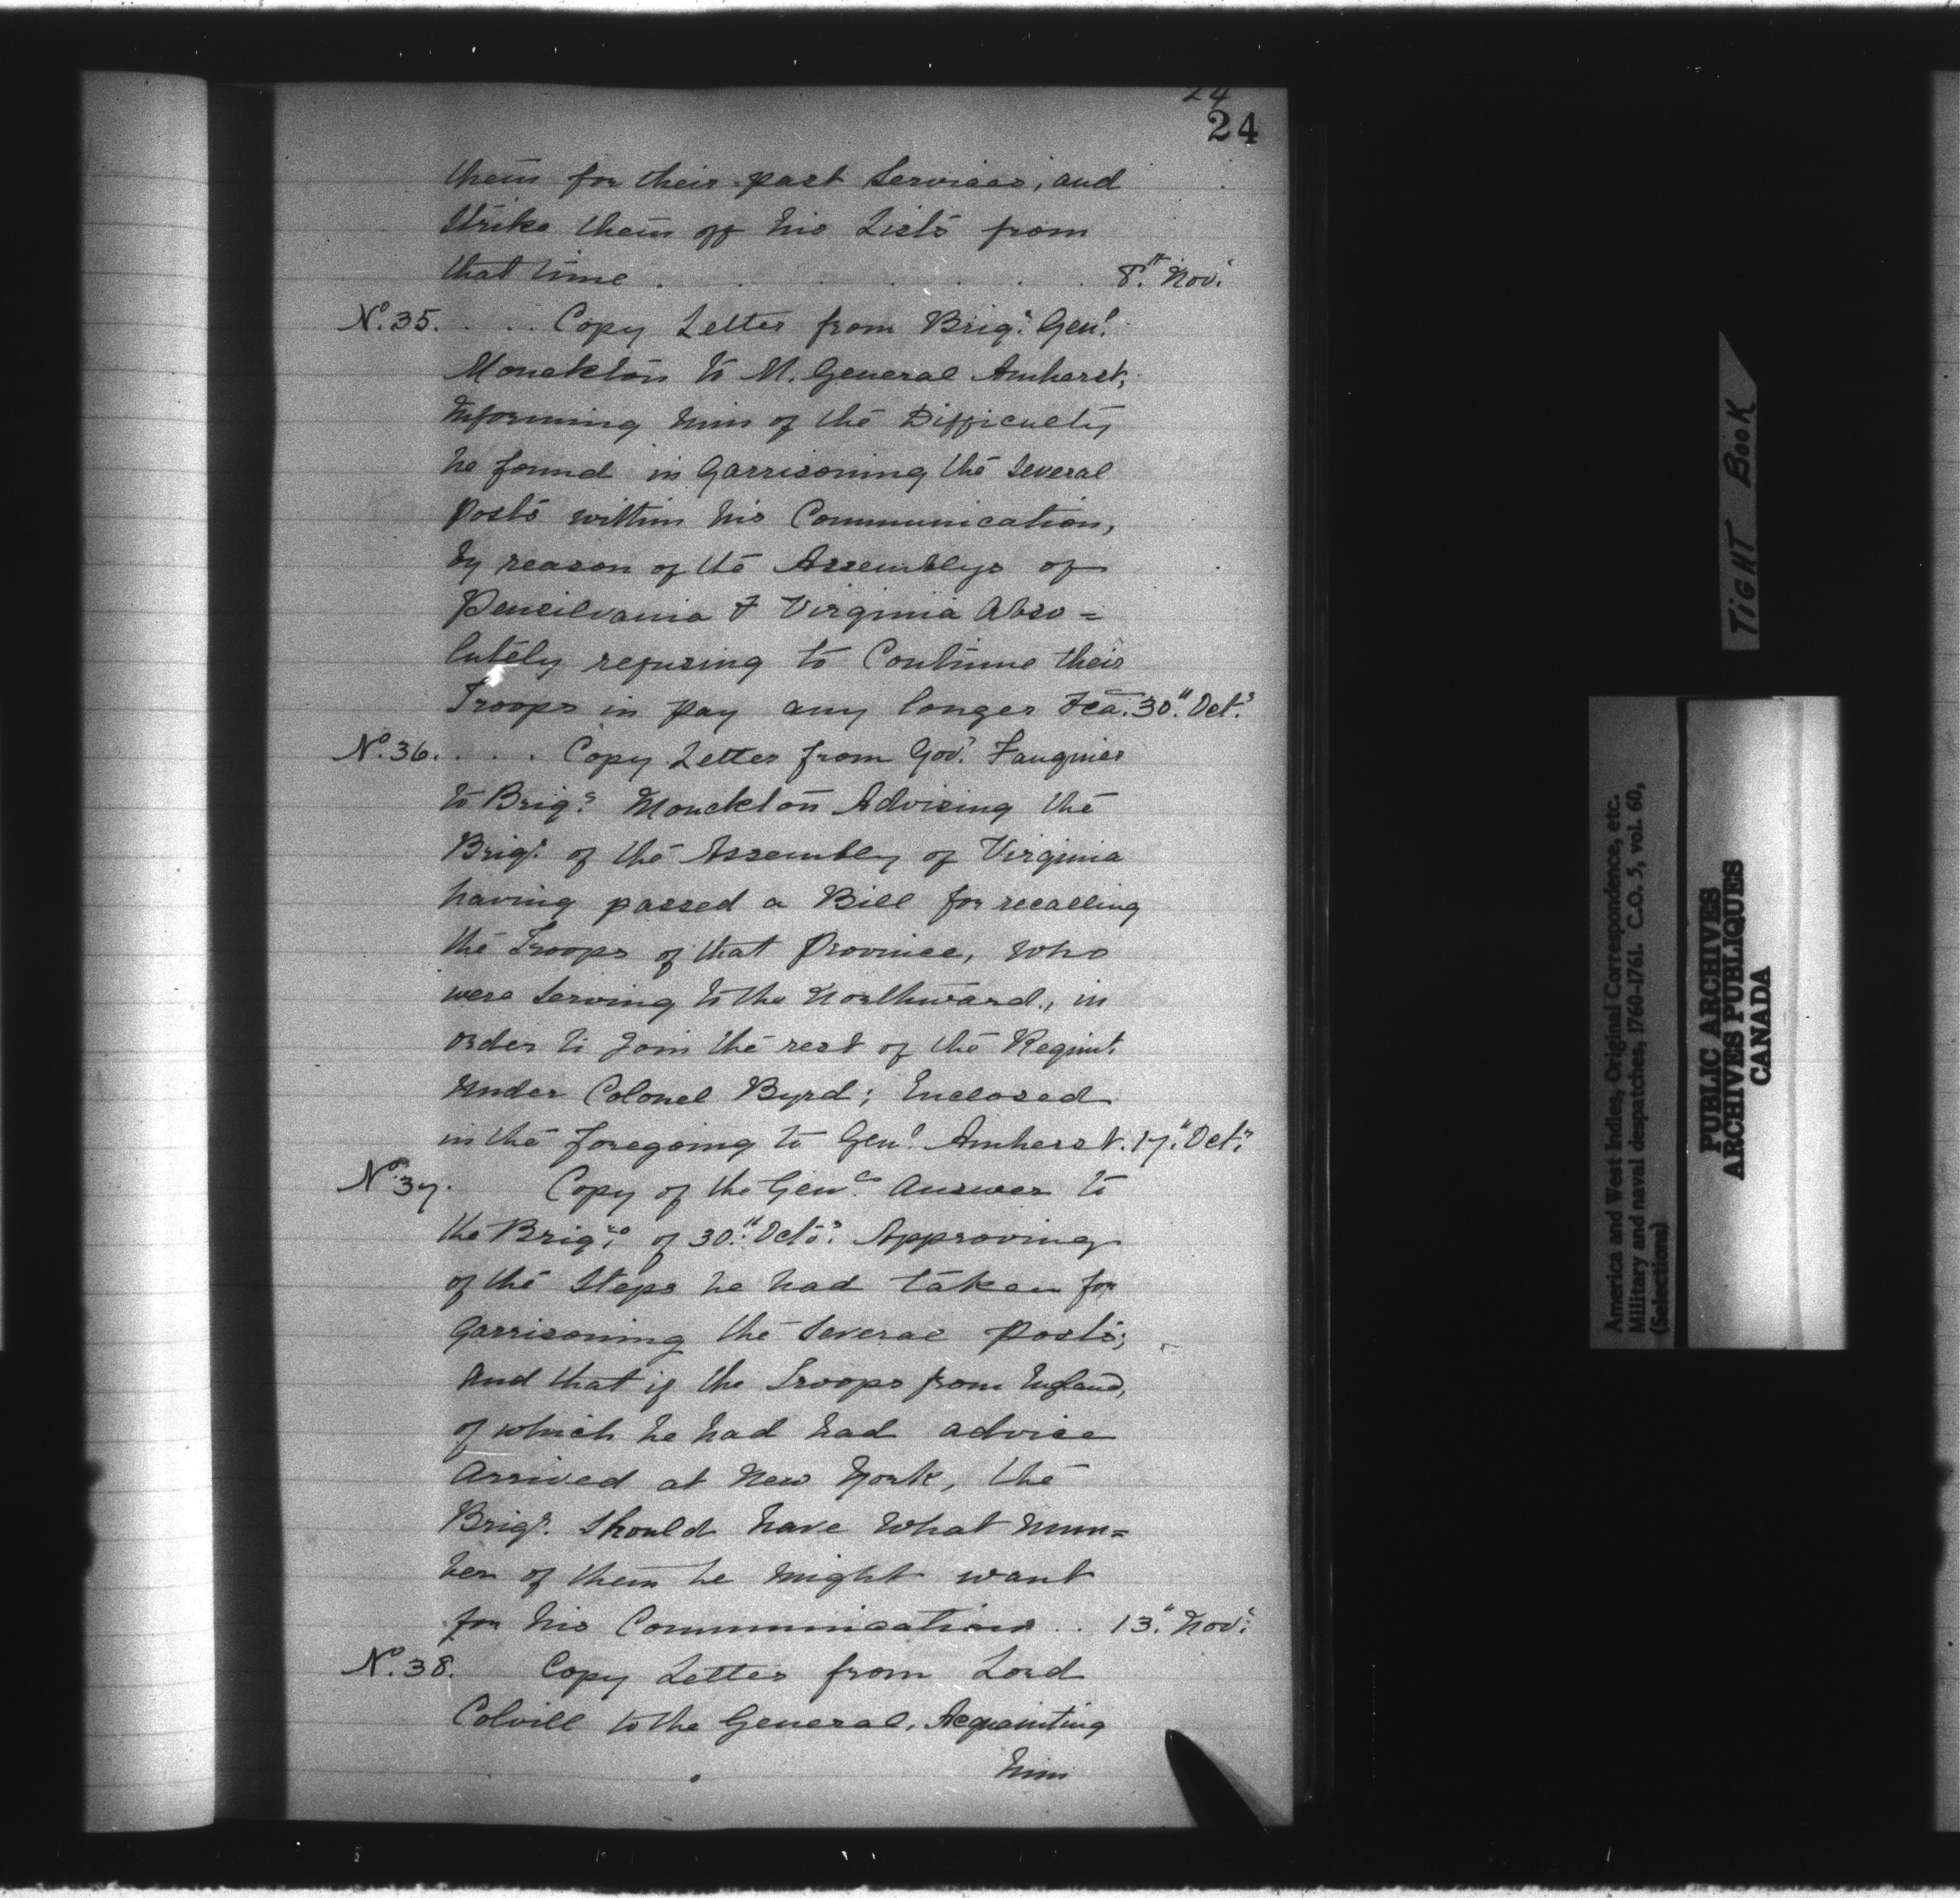 24
24
them for their past Services, and
Strike them off his Lists from
that time . . . . . . . 8th Nov.r
No. 35. . . . Copy Letter from Brig.r Gen.l
Monckton to M. General Amherst,
Informing him of the Difficulty
he found in Garrisoning the Several
Posts within his Communication,
by reason of the Assemblys of
Pensilvania & Virginia Abso=
lutely refusing to Continue their
Troops in pay any longer &ca. 30." Oct.r
No. 36. . . . Copy Letter from Gov.r Fauquier
to Brig.r Monckton Advising the
Brig.r of the Assembly of Virginia
having passed a Bill for recalling
the Troops of that Province, who
were Serving to the Northward, in
order to Join the rest of the Regim.t
Under Colonel Byrd; Enclosed
in the foregoing to Gen.l Amherst. 17." Oct.r
No. 37. Copy of the Gen.ls Answer to
the Brig.rs of 30." Octo.r Approving
of the Steps he had taken for
Garrisoning the Several Posts;
And that if the Troops from England,
of which he had had advice
Arrived at New York, the
Brig.r Should have what Num=
ber of them he might want
for his Communication . . 13." Nov.r
No. 38. Copy Letter from Lord
Colvill to the General, Acquainting
him
TIGHT BOOK
America and West Indies, Original Correspondence, etc.
Military and naval despatches, 1760-1761. C.O. 5, vol. 60,
(Selections)
PUBLIC ARCHIVES
ARCHIVES PUBLIQUES
CANADA